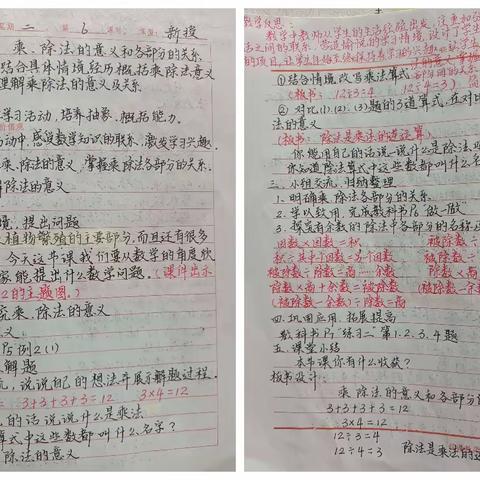 星期 二 第 6 课型 新授
乘、除法的意义和各部分的关系
结合具体情境,经历概括乘、除法意义
理解乘、除法的意义及关系
学习活动,培养抽象、概括能力。
动中,感受数学知识的联系,激发学习兴趣
乘、除法的意义,掌握乘、除法各部分的关系
除法的意义
境,提出问题
植物繁殖的主要部分,而且还有很多
今天这节课我们要从数学的角度欣
家能提出什么数学问题。(课件出示
2的主题图。)
究乘、除法的意义
意义:
P5例2(1)
解题
流,说说自己的想法并展示解题过程.
3+3+3+3=12 3×4=12
的话说说,什么是乘法
算式中这些数都叫什么名字?
除法的意义
教学反思:
数学中教师从学生的生活经验出发,注重知
活之间的联系,营造愉悦的学习情境,设计了学生
①结合情境改写乘法算式
(板书: 12÷3=4 12÷4=3)
②对比(1).(2).(3)题的3道算式,在对比
法的意义
(板书:除法是乘法的逆运算)
你能用自己的话说一说什么是除法
你知道除法算式中这些数都叫什么名
三、小组交流,归纳整理
1.明确乘、除法各部分的关系
2.学以致用,完成教科书P6“做一做”
3.探究有余数的除法中各部分的名称
因数×因数=积 被除数÷
积÷其中一个因数=另一个因数
被除数÷除数=商……余数 除数×商
除数×商+余数=被除数 (被除数-余
(被除数-余数)÷除数=商
四、巩固应用,拓展提高
教科书P7“练习二”第1、2、3、4题
五、课堂小结
本节课你有什么收获?
板书设计:
乘、除法的意义和各部分
3+3+3+3=12
3×4=12
12÷3=4
12÷4=3 除法是乘法的逆